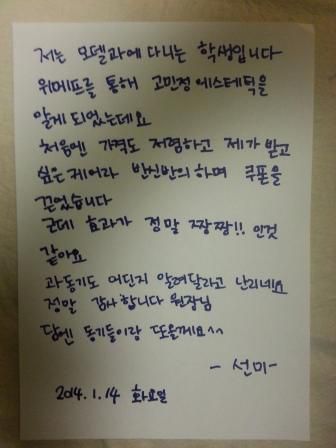 저는 모델과에 다니는 학생입니다
위메프를 통해 고민정에스테틱을
알게 되었는데요
처음엔 가격도 저렴하고 제가 받고
싶은 케어라 반신반의 하며 쿠폰을
끈었습니다
근데 효과가 정말 짱짱!! 인것
같아요
과동기도 어딘지 알려달라고 난리네요
정말 감사합니다 원장님
담엔 동기들이랑 또올께요^^
- 선미 -
2014. 1. 14 화요일